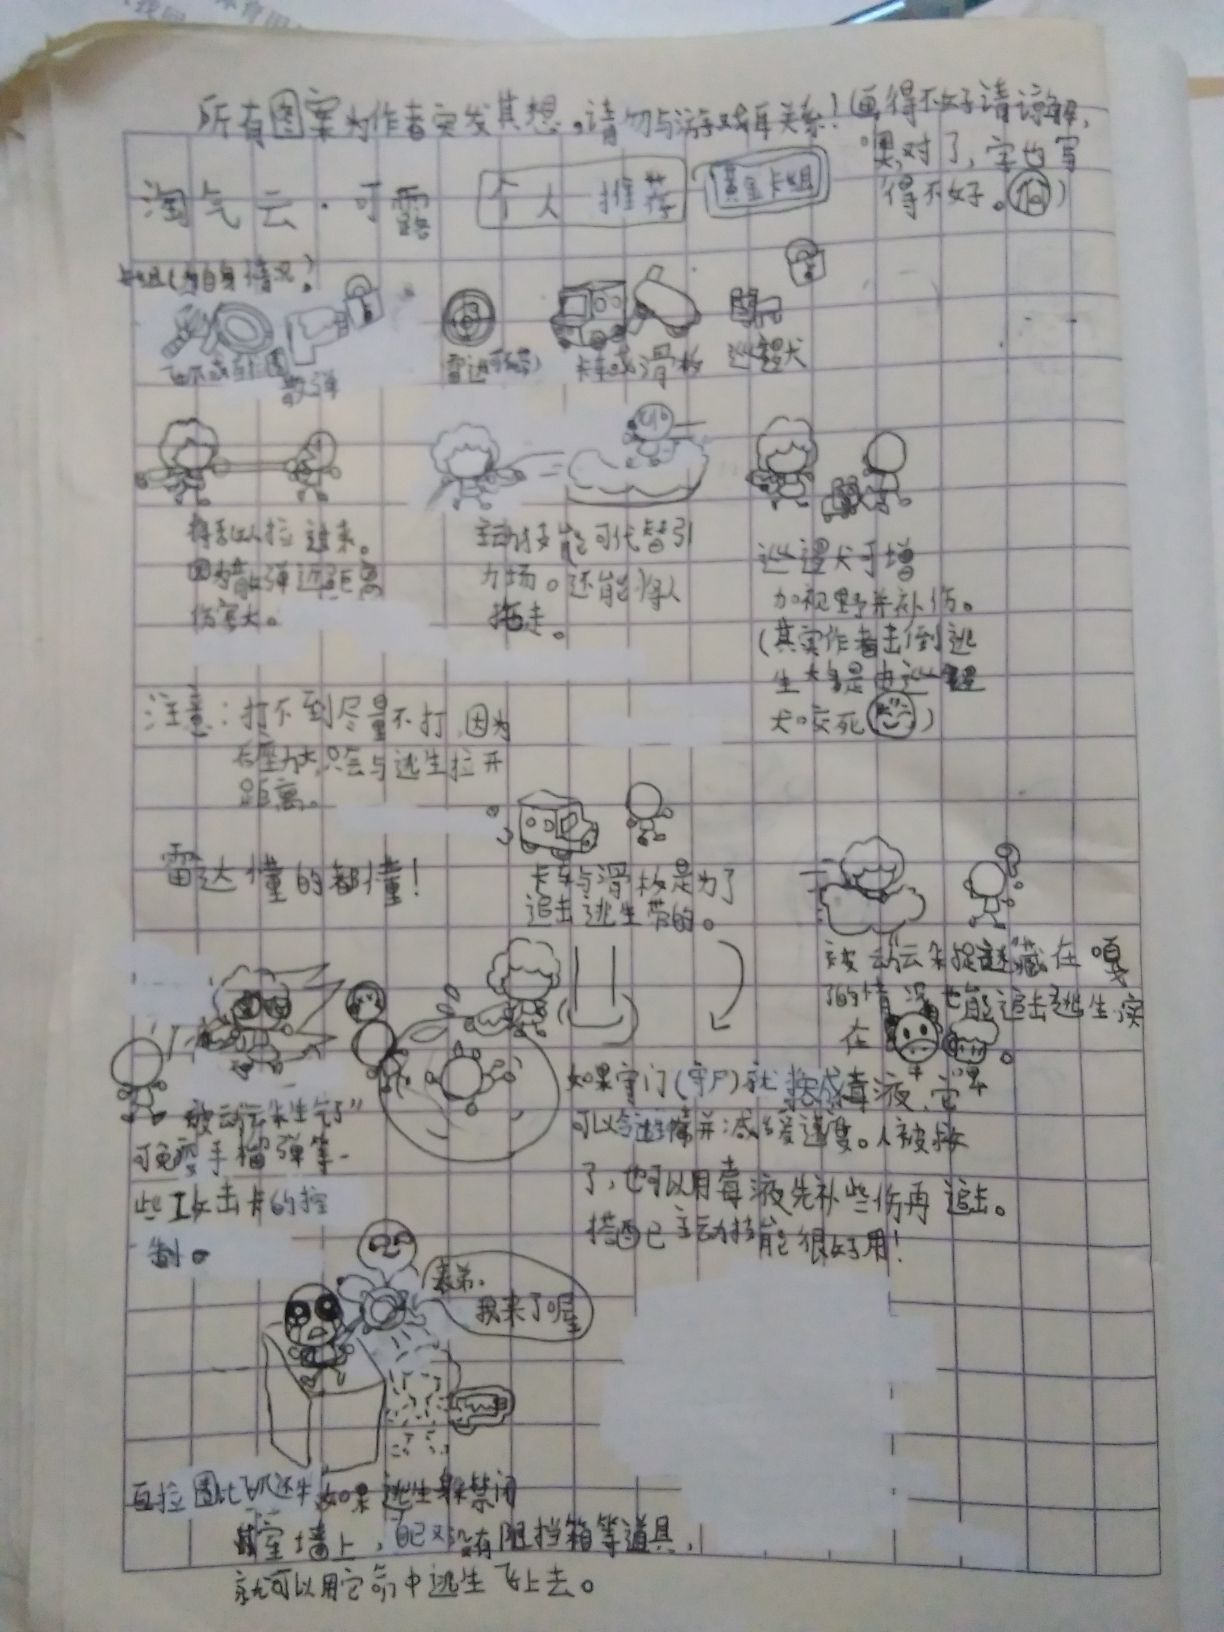 所有图案为作者突发其想。请勿与游戏有关系！(画得不好请谅解，
噢,对了，字也写
得不好。)
淘气云·可露
个人 推荐
黄金卡组
卡组(为自身情况?)
散弹
雷达(可带)
卡车或滑板
巡逻犬
将敌人拉过来。
因为散弹近距离
伤害大。
主动技能可代替引
力场。还能将人
拖走。
巡逻犬可增
加视野并补伤。
(其实作者击倒逃
生大多是由巡逻
犬咬死)
注意：打不到尽量不打,因为
后座力大,只会与逃生拉开
距离。
雷达懂的都懂！
卡车与滑板是为了
追击逃生带的。
被动云朵捉迷藏在嘎
了的情况也能追击逃生,实
在
牛
如果守门(守尸)就换成毒液,它
可以给逃生痛并减缓速度。人被救
了,也可以用毒液先补些伤再追击。
搭配已主动技能很好用！
被动云朵生气了”
可免疫手榴弹等一
些攻击卡的控
制。
表弟,
我来了喔
如果逃生躲禁闭
室墙上，自己又没有阻挡箱等道具，
就可以用它命中逃生飞上去。